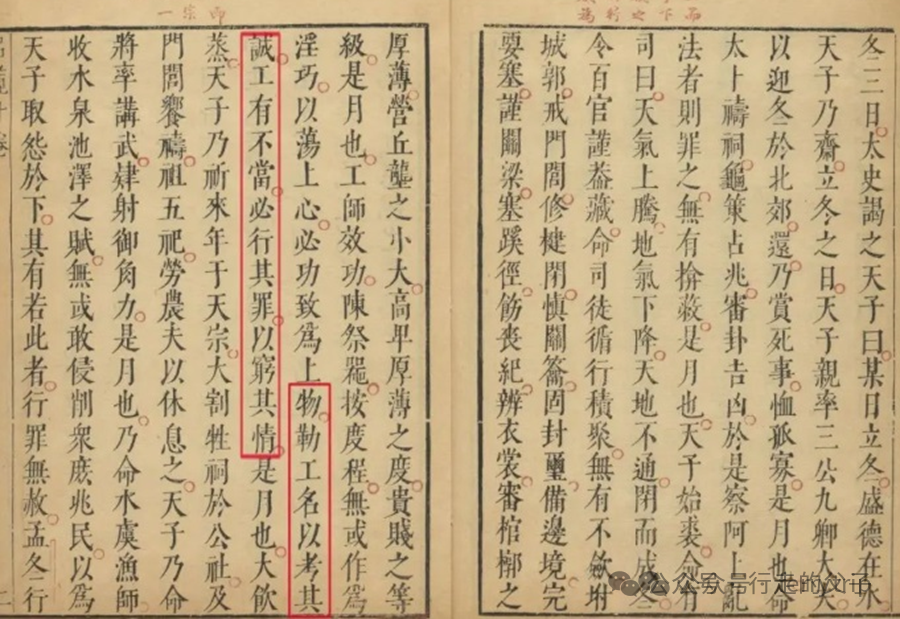 冬三日太史謁之天子曰某日立冬盛德在水
天子乃齋立冬之日天子親率三公九卿大夫
以迎冬於北郊還乃賞死事恤孤寡是月也命
太卜禱祠龜筴占兆審卦吉凶於是察阿上亂
法者則罪之無有揜蔽是月也天子始裘命有
司曰天氣上騰地氣下降天地不通閉而成冬
令百官謹蓋藏命司徒循行積聚無有不斂坿
城郭戒門閭修楗閉慎關籥固封璽備邊境完
要塞謹關梁塞蹊徑飭喪紀辨衣裳審棺槨之
厚薄營丘壟之小大高卑厚薄之度貴賤之等
級是月也工師效功陳祭器按度程無或作爲
淫巧以蕩上心必功致爲上物勒工名以考其
誠工有不當必行其罪以窮其情是月也大飲
蒸天子乃祈來年于天宗大割牲祠於公社及
門閭饗禱祖五祀勞農夫以休息之天子乃命
將率講武肄射御角力是月也乃命水虞漁師
收水泉池澤之賦無或敢侵削衆庶兆民以爲
天子取怨於下其有若此者行罪無赦孟冬行
公众号行走的文